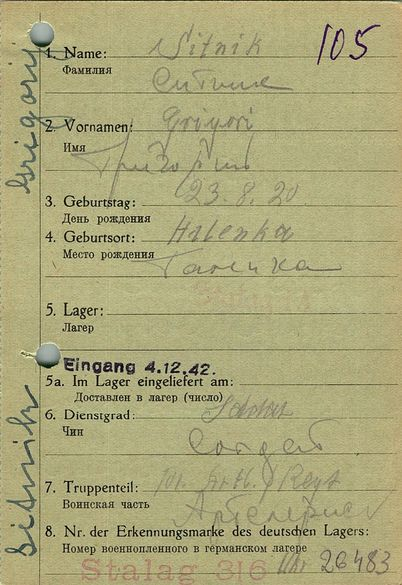 105
1. Name: Sitnik
Фамилия
Ситник
2. Vornamen: Grigori
Имя
Григорий
3. Geburtstag: 23. 8. 20.
День рождения
4. Geburtsort:
Место рождения
5. Lager:
Лагерь
Eingang 4.12.42.
5a. Im Lager eingeliefert am:
Доставлен в лагерь (число)
6. Dienstgrad: Soldat
Чин
Солдат
7. Truppenteil:
Воинская часть
8. Nr. der Erkennungsmarke des deutschen Lagers:
Номер военнопленного в германском лагере
Stalag 316 Nr 26483
Grigorij
Sitnik